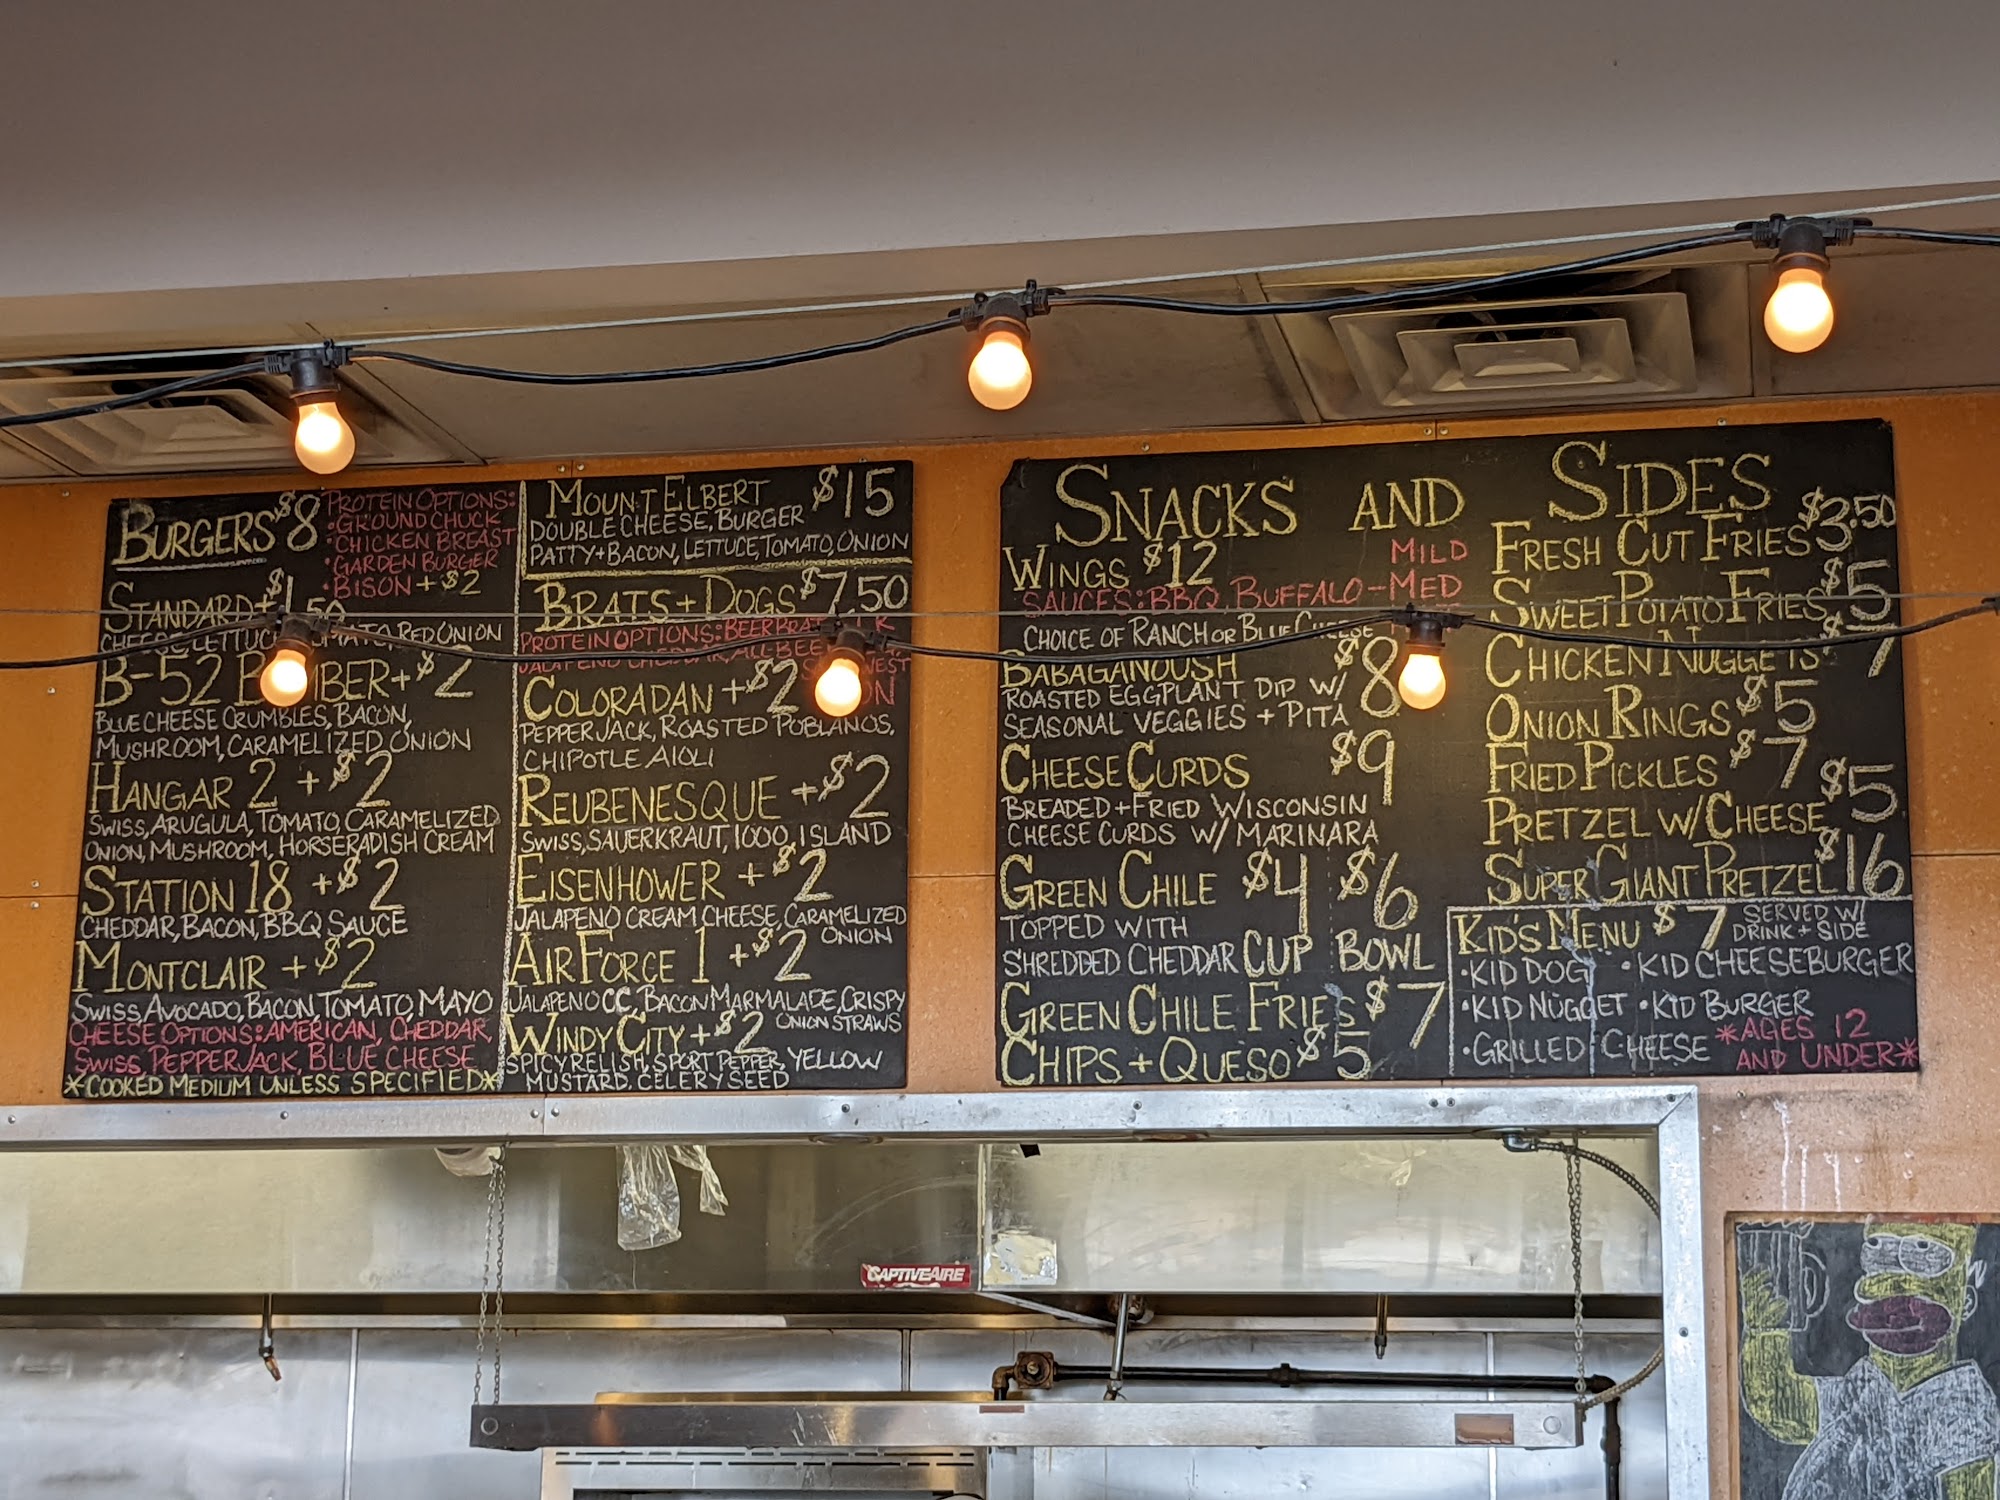 BURGERS $8
PROTEIN OPTIONS:
•GROUND CHUCK
•CHICKEN BREAST
•GARDEN BURGER
•BISON +$2
STANDARD +$1.50
CHEESE, LETTUCE, TOMATO, RED ONION
B-52 BOMBER +$2
BLUE CHEESE CRUMBLES, BACON,
MUSHROOM, CARAMELIZED ONION
HANGAR 2 +$2
SWISS, ARUGULA, TOMATO, CARAMELIZED
ONION, MUSHROOM, HORSERADISH CREAM
STATION 18 +$2
CHEDDAR, BACON, BBQ SAUCE
MONTCLAIR +$2
SWISS, AVOCADO, BACON, TOMATO, MAYO
CHEESE OPTIONS: AMERICAN, CHEDDAR,
SWISS, PEPPERJACK, BLUE CHEESE
*COOKED MEDIUM UNLESS SPECIFIED*
MOUNT ELBERT $15
DOUBLE CHEESE, BURGER
PATTY+BACON, LETTUCE, TOMATO, ONION
BRATS + DOGS $7.50
PROTEIN OPTIONS: BEER BRAT,
JALAPENO CHEDDAR, ALL-BEEF
COLORADAN +$2
PEPPERJACK, ROASTED POBLANOS,
CHIPOTLE AIOLI
REUBENESQUE +$2
SWISS, SAUERKRAUT, 1000 ISLAND
EISENHOWER +$2
JALAPENO CREAM CHEESE, CARAMELIZED
ONION
AIR FORCE 1 +$2
JALAPENO CC, BACON MARMALADE, CRISPY
ONION STRAWS
WINDY CITY +$2
SPICY RELISH, SPORT PEPPER, YELLOW
MUSTARD, CELERY SEED
SNACKS AND SIDES
WINGS $12
MILD
SAUCES: BBQ, BUFFALO-MED
CHOICE OF RANCH OR BLUE CHEESE
BABAGANOUSH $8
ROASTED EGGPLANT DIP W/
SEASONAL VEGGIES + PITA
CHEESE CURDS $9
BREADED + FRIED WISCONSIN
CHEESE CURDS W/ MARINARA
GREEN CHILE $4 $6
TOPPED WITH
SHREDDED CHEDDAR CUP BOWL
GREEN CHILE FRIES $7
CHIPS + QUESO $5
FRESH CUT FRIES $3.50
SWEET POTATO FRIES $5
CHICKEN NUGGETS $7
ONION RINGS $5
FRIED PICKLES $7
PRETZEL W/ CHEESE $5
SUPER GIANT PRETZEL $16
KID'S MENU $7 SERVED W/
DRINK + SIDE
•KID DOG •KID CHEESEBURGER
•KID NUGGET •KID BURGER
•GRILLED CHEESE
*AGES 12
AND UNDER*
CAPTIVEAIRE